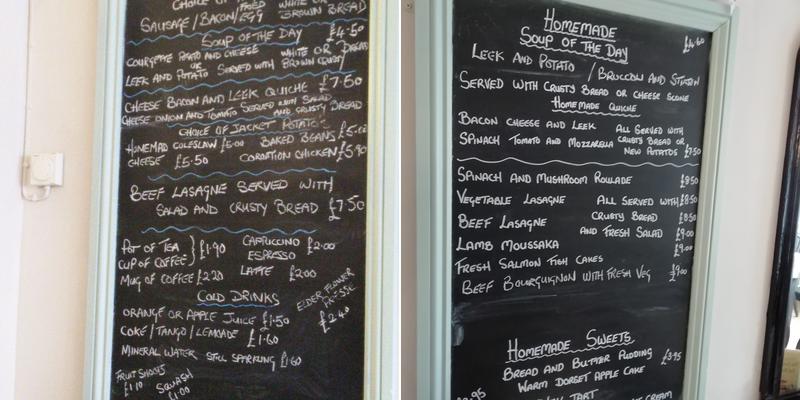 CHOICE OF FRIED WHITE OR
SAUSAGE/BACON/EGG BROWN BREAD
SOUP OF THE DAY £4.50
COURGETTE POATO AND CHEESE WHITE OR
OR
LEEK AND POTATO SERVED WITH BROWN CRUSTY BREAD
CHEESE BACON AND LEEK QUICHE £7.50
CHEESE ONION AND TOMATO SERVED WITH SALAD AND CRUSTY BREAD
CHOICE OF JACKET POTATOE
HOMEMAD COLESLAW £5.00 BAKED BEANS
CHEESE £5.50 CORONATION CHICKEN £5.90
BEEF LASAGNE SERVED WITH
SALAD AND CRUSTY BREAD £7.50
POT OF TEA £1.90 CAPPUCCINO £2.00
CUP OF COFFEE ESPRESSO
MUG OF COFFEE £2.20 LATTE £2.00
COLD DRINKS
ELDER FLOWER
ORANGE OR APPLE JUICE £1.50 £2.40
COKE/TANGO/LEMOADE £1.60
MINERAL WATER STILL SPARKLING £1.60
FRUIT SHOOTS
£1.10 SQUASH
£1.00
HOMEMADE
SOUP OF THE DAY £4.60
LEEK AND POTATO / BROCCOLI AND STILTON
SERVED WITH CRUSTY BREAD OR CHEESE SCONE
HOMEMADE QUICHE
BACON CHEESE AND LEEK ALL SERVED WITH
SPINACH TOMATO AND MOZZARELLA CRUSTY BREAD OR
NEW POTATOS £7.50
SPINACH AND MUSHROOM ROULADE £8.50
VEGETABLE LASAGNE ALL SERVED WITH £8.50
BEEF LASAGNE CRUSTY BREAD £8.50
LAMB MOUSSAKA AND FRESH SALAD £9.00
FRESH SALMON FISH CAKES £9.00
BEEF BOURGUIGNON WITH FRESH VEG £9.00
HOMEMADE SWEETS
BREAD AND BUTTER PUDDING £3.95
WARM DORSET APPLE CAKE
TART CREAM